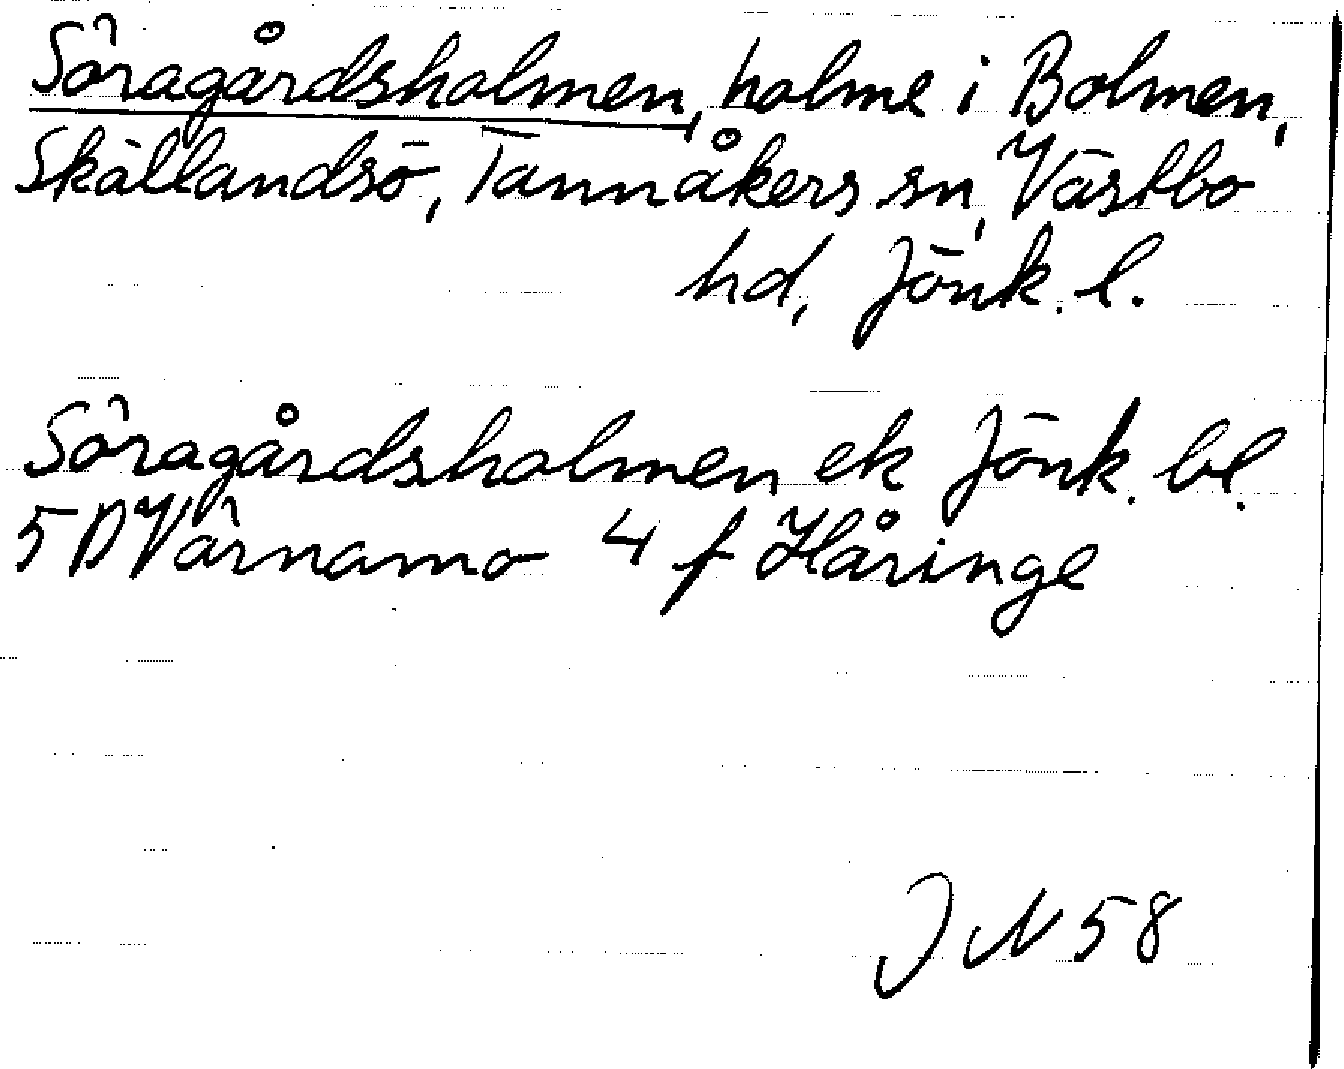 Söragårdsholmen, holme i Bolmen,
Skållandsö, Tannåkers sn, Västbo
hd, Jönk. l.
Söragårdsholmen ek Jönk. bl.
5D Värnamo 4 f Håringe
JN 58